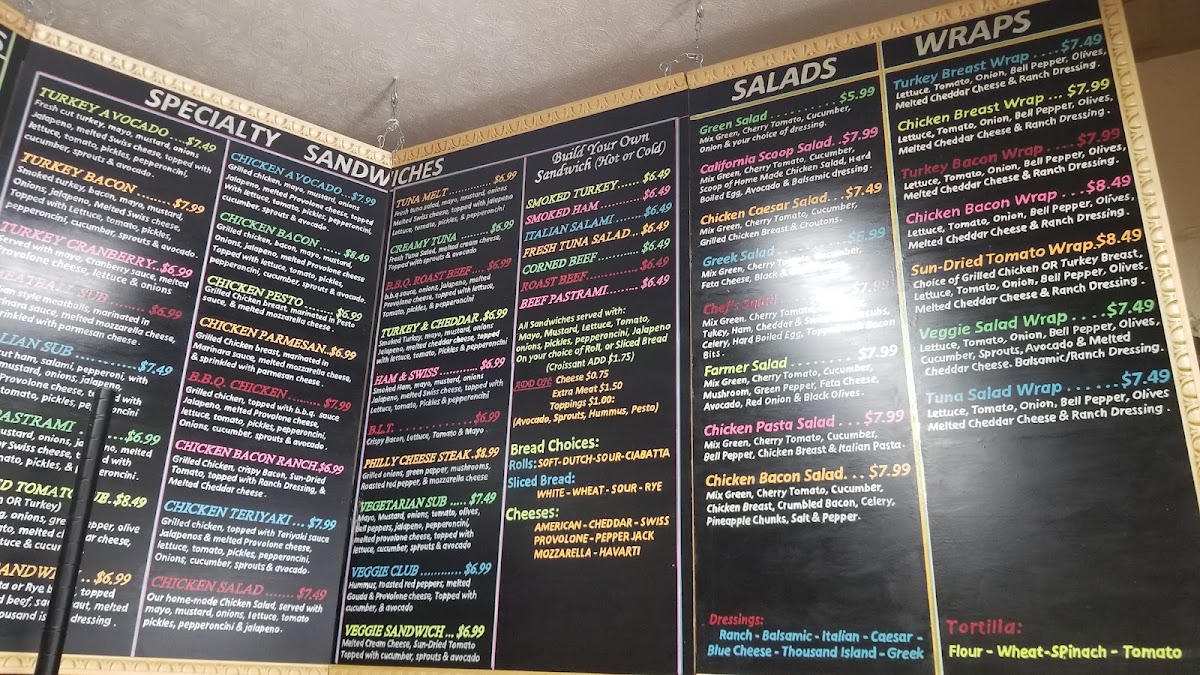 SPECIALTY SANDWICHES
TURKEY AVOCADO ... $7.49
Fresh cut turkey, mayo, mustard, onions
Jalapeno, melted Swiss cheese, topped with
lettuce, tomato, pickles, pepperoncini,
cucumber, sprouts & avocado.
TURKEY BACON ..... $7.99
Smoked turkey, bacon, mayo, mustard,
Onions, jalapeno, Melted Swiss cheese,
Topped with Lettuce, tomato, pickles,
pepperoncini, cucumber, sprouts & avocado.
TURKEY CRANBERRY. $6.99
Served with mayo, Cranberry sauce, melted
Provolone cheese, lettuce & onions
SUB ..... $6.99
style meatballs, marinated in
marinara sauce, melted mozzarella cheese,
sprinkled with parmesan cheese.
ITALIAN SUB ....... $7.49
cut ham, salami, pepperoni, with
mustard, onions, jalapeno,
Provolone cheese, topped with
tomato, pickles, pepperoncini
PASTRAMI ........ $6.99
mustard, onions, melted
Swiss cheese, topped with
tomato, pickles, & pepperoncini.
TOMATO SUB. $8.49
OR Turkey)
onions, green pepper, olive
cheese,
lettuce & cucumber
SANDWICH .. $6.99
or Rye bread, topped
beef, melted
thousand island dressing.
CHICKEN AVOCADO ... $7.99
Grilled chicken, mayo, mustard, onions
Jalapeno, melted Provolone cheese, topped
With lettuce, tomato, pickles, Pepperoncini,
cucumber, sprouts & avocado.
CHICKEN BACON ..... $8.49
Grilled chicken, bacon, mayo, mustard,
Onions, jalapeno, melted Provolone cheese
topped with lettuce, tomato, pickles,
pepperoncini, cucumber, sprouts & avocado
CHICKEN PESTO ...... $6.99
Grilled Chicken breast, marinated in Pesto
sauce, & melted mozzarella cheese.
CHICKEN PARMESAN..$6.99
Grilled Chicken breast, marinated in
Marinara sauce, melted mozzarella cheese,
& sprinkled with parmesan cheese.
B.B.Q. CHICKEN ...... $7.99
Grilled chicken, topped with b.b.q. sauce
Jalapeno, melted Provolone cheese,
lettuce, tomato, pickles, pepperoncini,
Onions, cucumber, sprouts & avocado.
CHICKEN BACON RANCH.$6.99
Grilled Chicken, crispy Bacon, Sun-Dried
Tomato, topped with Ranch Dressing, &
Melted Cheddar cheese.
CHICKEN TERIYAKI ... $7.99
Grilled chicken, topped with Teriyaki sauce
Jalapenos & melted Provolone cheese,
lettuce, tomato, pickles, pepperoncini,
Onions, cucumber, sprouts & avocado.
CHICKEN SALAD ....... $7.49
Our home-made Chicken Salad, served with
mayo, mustard, onions, lettuce, tomato
pickles, pepperoncini & jalapeno.
TUNA MELT .............. $6.99
Fresh tuna salad, mayo, mustard, onions
Melted Swiss cheese, topped with Jalapeno
Lettuce, tomato, pickles, & pepperoncini
CREAMY TUNA ........ $6.99
Fresh Tuna Salad, melted cream cheese,
Topped with sprouts & avocado
B.B.Q. ROAST BEEF.... $6.99
b.b.q sauce, onions, jalapeno, melted
Provolone cheese, topped with lettuce,
tomato, pickles, & pepperoncini
TURKEY & CHEDDAR .$6.99
Smoked Turkey, mayo, mustard, onions
Jalapeno, melted cheddar cheese, topped
with lettuce, tomato, Pickles & pepperoncini
HAM & SWISS ........... $6.99
Smoked Ham, mayo, mustard, onions
Jalapeno, melted Swiss cheese, topped with
Lettuce, tomato, Pickles & pepperoncini
B.L.T. .................. $6.99
Crispy Bacon, Lettuce, Tomato & Mayo
PHILLY CHEESE STEAK .$8.99
Grilled onions, green pepper, mushrooms,
Roasted red pepper, & mozzarella cheese
VEGETARIAN SUB ..... $7.49
Mayo, Mustard, onions, tomato, olives,
Bell peppers, jalapeno, pepperoncini,
melted provolone cheese, topped with
lettuce, cucumber, sprouts & avocado
VEGGIE CLUB ............ $6.99
Hummus, roasted red peppers, melted
Gouda & Provolone cheese, Topped with
cucumber, & avocado
VEGGIE SANDWICH ... $6.99
Melted Cream Cheese, Sun-Dried Tomato
Topped with cucumber, sprouts & avocado
Build Your Own
Sandwich (Hot or Cold)
SMOKED TURKEY...... $6.49
SMOKED HAM .......... $6.49
ITALIAN SALAMI ....... $6.49
FRESH TUNA SALAD... $6.49
CORNED BEEF .......... $6.49
ROAST BEEF............. $6.49
BEEF PASTRAMI........ $6.49
All Sandwiches served with:
Mayo, Mustard, Lettuce, Tomato,
onions, pickles, pepperoncini, Jalapeno
On your choice of Roll, or Sliced Bread
(Croissant ADD $1.75)
ADD ON: Cheese $0.75
Extra Meat $1.50
Toppings $1.00:
(Avocado, Sprouts, Hummus, Pesto)
Bread Choices:
Rolls: SOFT-DUTCH-SOUR-CIABATTA
Sliced Bread:
WHITE - WHEAT - SOUR - RYE
Cheeses:
AMERICAN - CHEDDAR - SWISS
PROVOLONE - PEPPER JACK
MOZZARELLA - HAVARTI
SALADS
Green Salad .......... $5.99
Mix Green, Cherry Tomato, Cucumber,
Onion & your choice of dressing.
California Scoop Salad. .$7.99
Mix Green, Cherry Tomato, Cucumber,
Scoop of Home Made Chicken Salad, Hard
Boiled Egg, Avocado & Balsamic dressing.
Chicken Caesar Salad... $7.49
Mix Green, Cherry Tomato, Cucumber,
Grilled Chicken Breast & Croutons.
Greek Salad ........ $6.99
Mix Green, Cherry Tomato, Cucumber,
Feta Cheese, Black &
Chef's Salad ....... $7.99
Mix Green, Cherry Tomato, Cucumber,
Tukery, Ham, Cheddar & Swiss
Celery, Hard Boiled Egg, Topped Bacon
Bits.
Farmer Salad ........ $7.99
Mix Green, Cherry Tomato, Cucumber,
Mushroom, Green Pepper, Feta Cheese,
Avocado, Red Onion & Black Olives.
Chicken Pasta Salad .... $7.99
Mix Green, Cherry Tomato, Cucumber,
Bell Pepper, Chicken Breast & Italian Pasta.
Chicken Bacon Salad. . . $7.99
Mix Green, Cherry Tomato, Cucumber,
Chicken Breast, Crumbled Bacon, Celery,
Pineapple Chunks, Salt & Pepper.
Dressings:
Ranch - Balsamic - Italian - Caesar -
Blue Cheese - Thousand Island - Greek
WRAPS
Turkey Breast Wrap ....$7.49
Lettuce, Tomato, Onion, Bell Pepper, Olives,
Melted Cheddar Cheese & Ranch Dressing.
Chicken Breast Wrap ... $7.99
Lettuce, Tomato, Onion, Bell Pepper, Olives,
Melted Cheddar Cheese & Ranch Dressing.
Turkey Bacon Wrap .... $7.99
Lettuce, Tomato, Onion, Bell Pepper, Olives,
Melted Cheddar Cheese & Ranch Dressing.
Chicken Bacon Wrap ... $8.49
Lettuce, Tomato, Onion, Bell Pepper, Olives,
Melted Cheddar Cheese & Ranch Dressing.
Sun-Dried Tomato Wrap.$8.49
Choice of Grilled Chicken OR Turkey Breast,
Lettuce, Tomato, Onion, Bell Pepper, Olives,
Melted Cheddar Cheese & Ranch Dressing.
Veggie Salad Wrap ....$7.49
Lettuce, Tomato, Onion, Bell Pepper, Olives,
Cucumber, Sprouts, Avocado & Melted
Cheddar Cheese. Balsamic/Ranch Dressing.
Tuna Salad Wrap .......$7.49
Lettuce, Tomato, Onion, Bell Pepper, Olives
Melted Cheddar Cheese & Ranch Dressing.
Tortilla:
Flour - Wheat-SPinach - Tomato